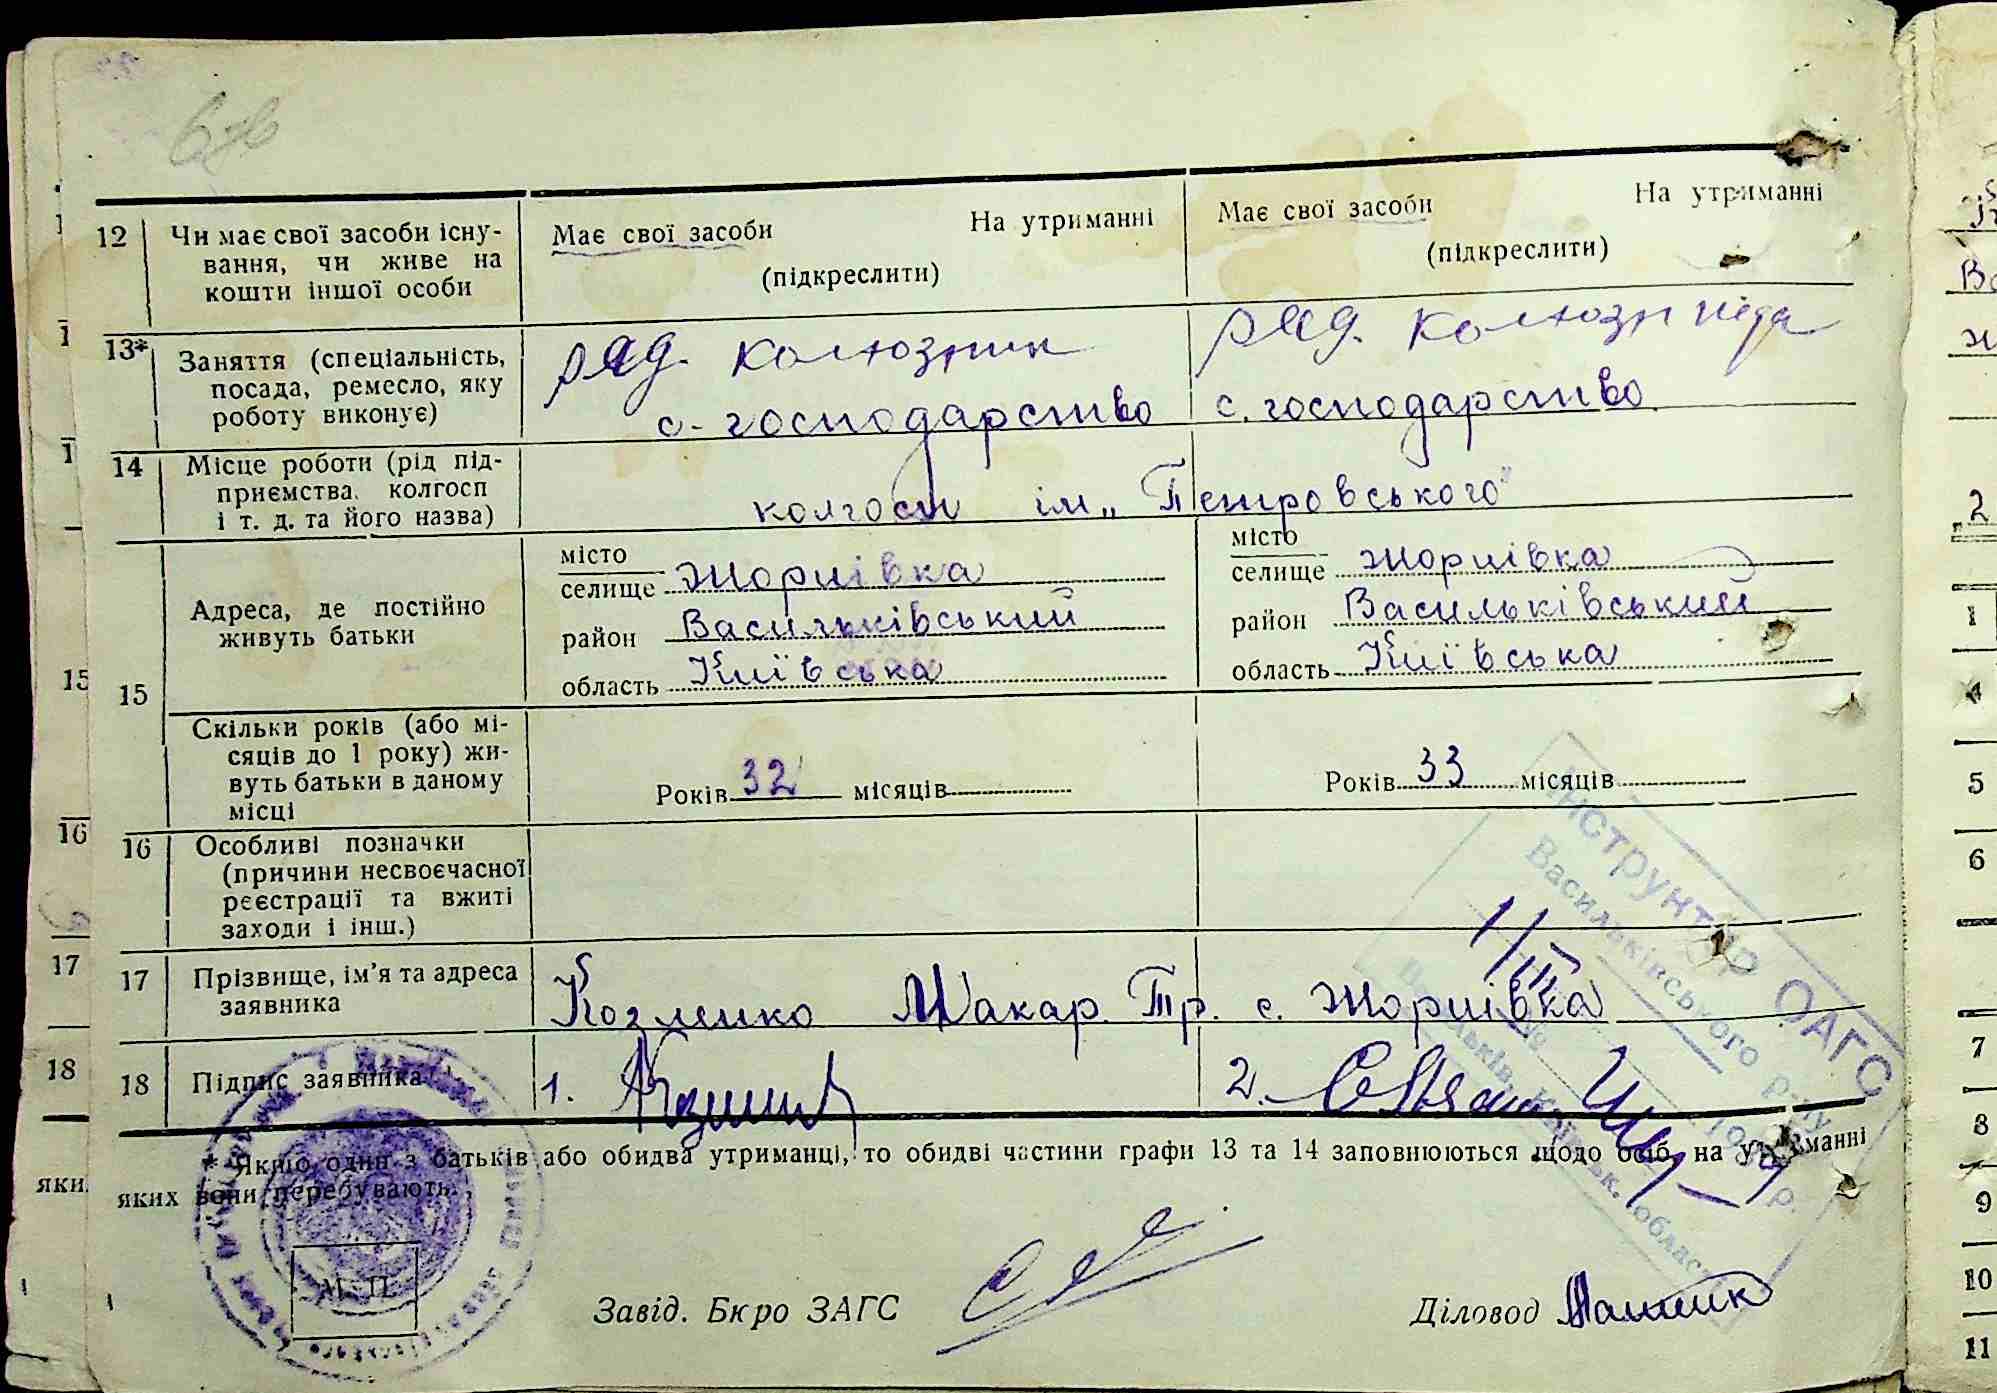 12 Чи має свої засоби існу-
вання, чи живе на
кошти іншої особи
Має свої засоби На утриманні
(підкреслити)
Має свої засоби На утриманні
(підкреслити)
13* Заняття (спеціальність,
посада, ремесло, яку
роботу виконує)
ряд. колгозник
с-господарство
ряд. колгозниця
с. господарство
14 Місце роботи (рід під-
приємства, колгосп
і т. д. та його назва)
колгосп ім „Петровського"
15 Адреса, де постійно
живуть батьки
місто
селище Жорнівка
район Васильківський
область Київська
місто
селище Жорнівка
район Васильківський
область Київська
Скільки років (або мі-
сяців до 1 року) жи-
вуть батьки в даному
місці
Років 32 місяців
Років 33 місяців
16 Особливі позначки
(причини несвоєчасної
реєстрації та вжиті
заходи і інш.)
17 Прізвище, ім'я та адреса
заявника
Козленко Макар Тр. с. Жорнівка
18 Підпис заявника
1.
2.
* Якщо один з батьків або обидва утриманці, то обидві частини графи 13 та 14 заповнюються щодо осіб, на утриманні
яких вони перебувають.
М. П.
Завід. Бюро ЗАГС
Діловод
Інструктор ОАГС
Васильківського р-ну
1/III
15
16
17
18
яки
2
1
4
5
6
7
8
9
10
11